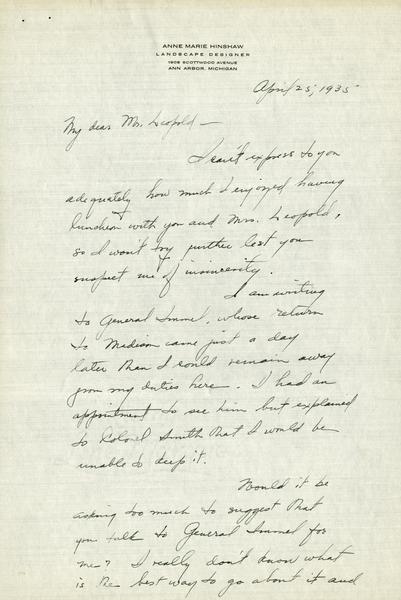 ANNE MARIE HINSHAW
LANDSCAPE DESIGNER
1908 SCOTTWOOD AVENUE
ANN ARBOR, MICHIGAN
April 25, 1935
My dear Mr. Leopold –
I can't express to you
adequately how much I enjoyed having
luncheon with you and Mrs. Leopold,
so I won't try further lest you
suspect me of insincerity.
I am writing
to General Immel, whose return
to Madison came just a day
later than I could remain away
from my duties here. I had an
appointment to see him but explained
to Colonel Smith that I would be
unable to keep it.
Would it be
asking too much to suggest that
you talk to General Immel for
me? I really don't know what
is the best way to go about it and